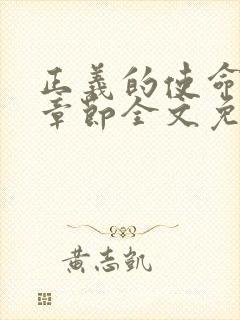 正義的使命
章節全文免
黃志凱